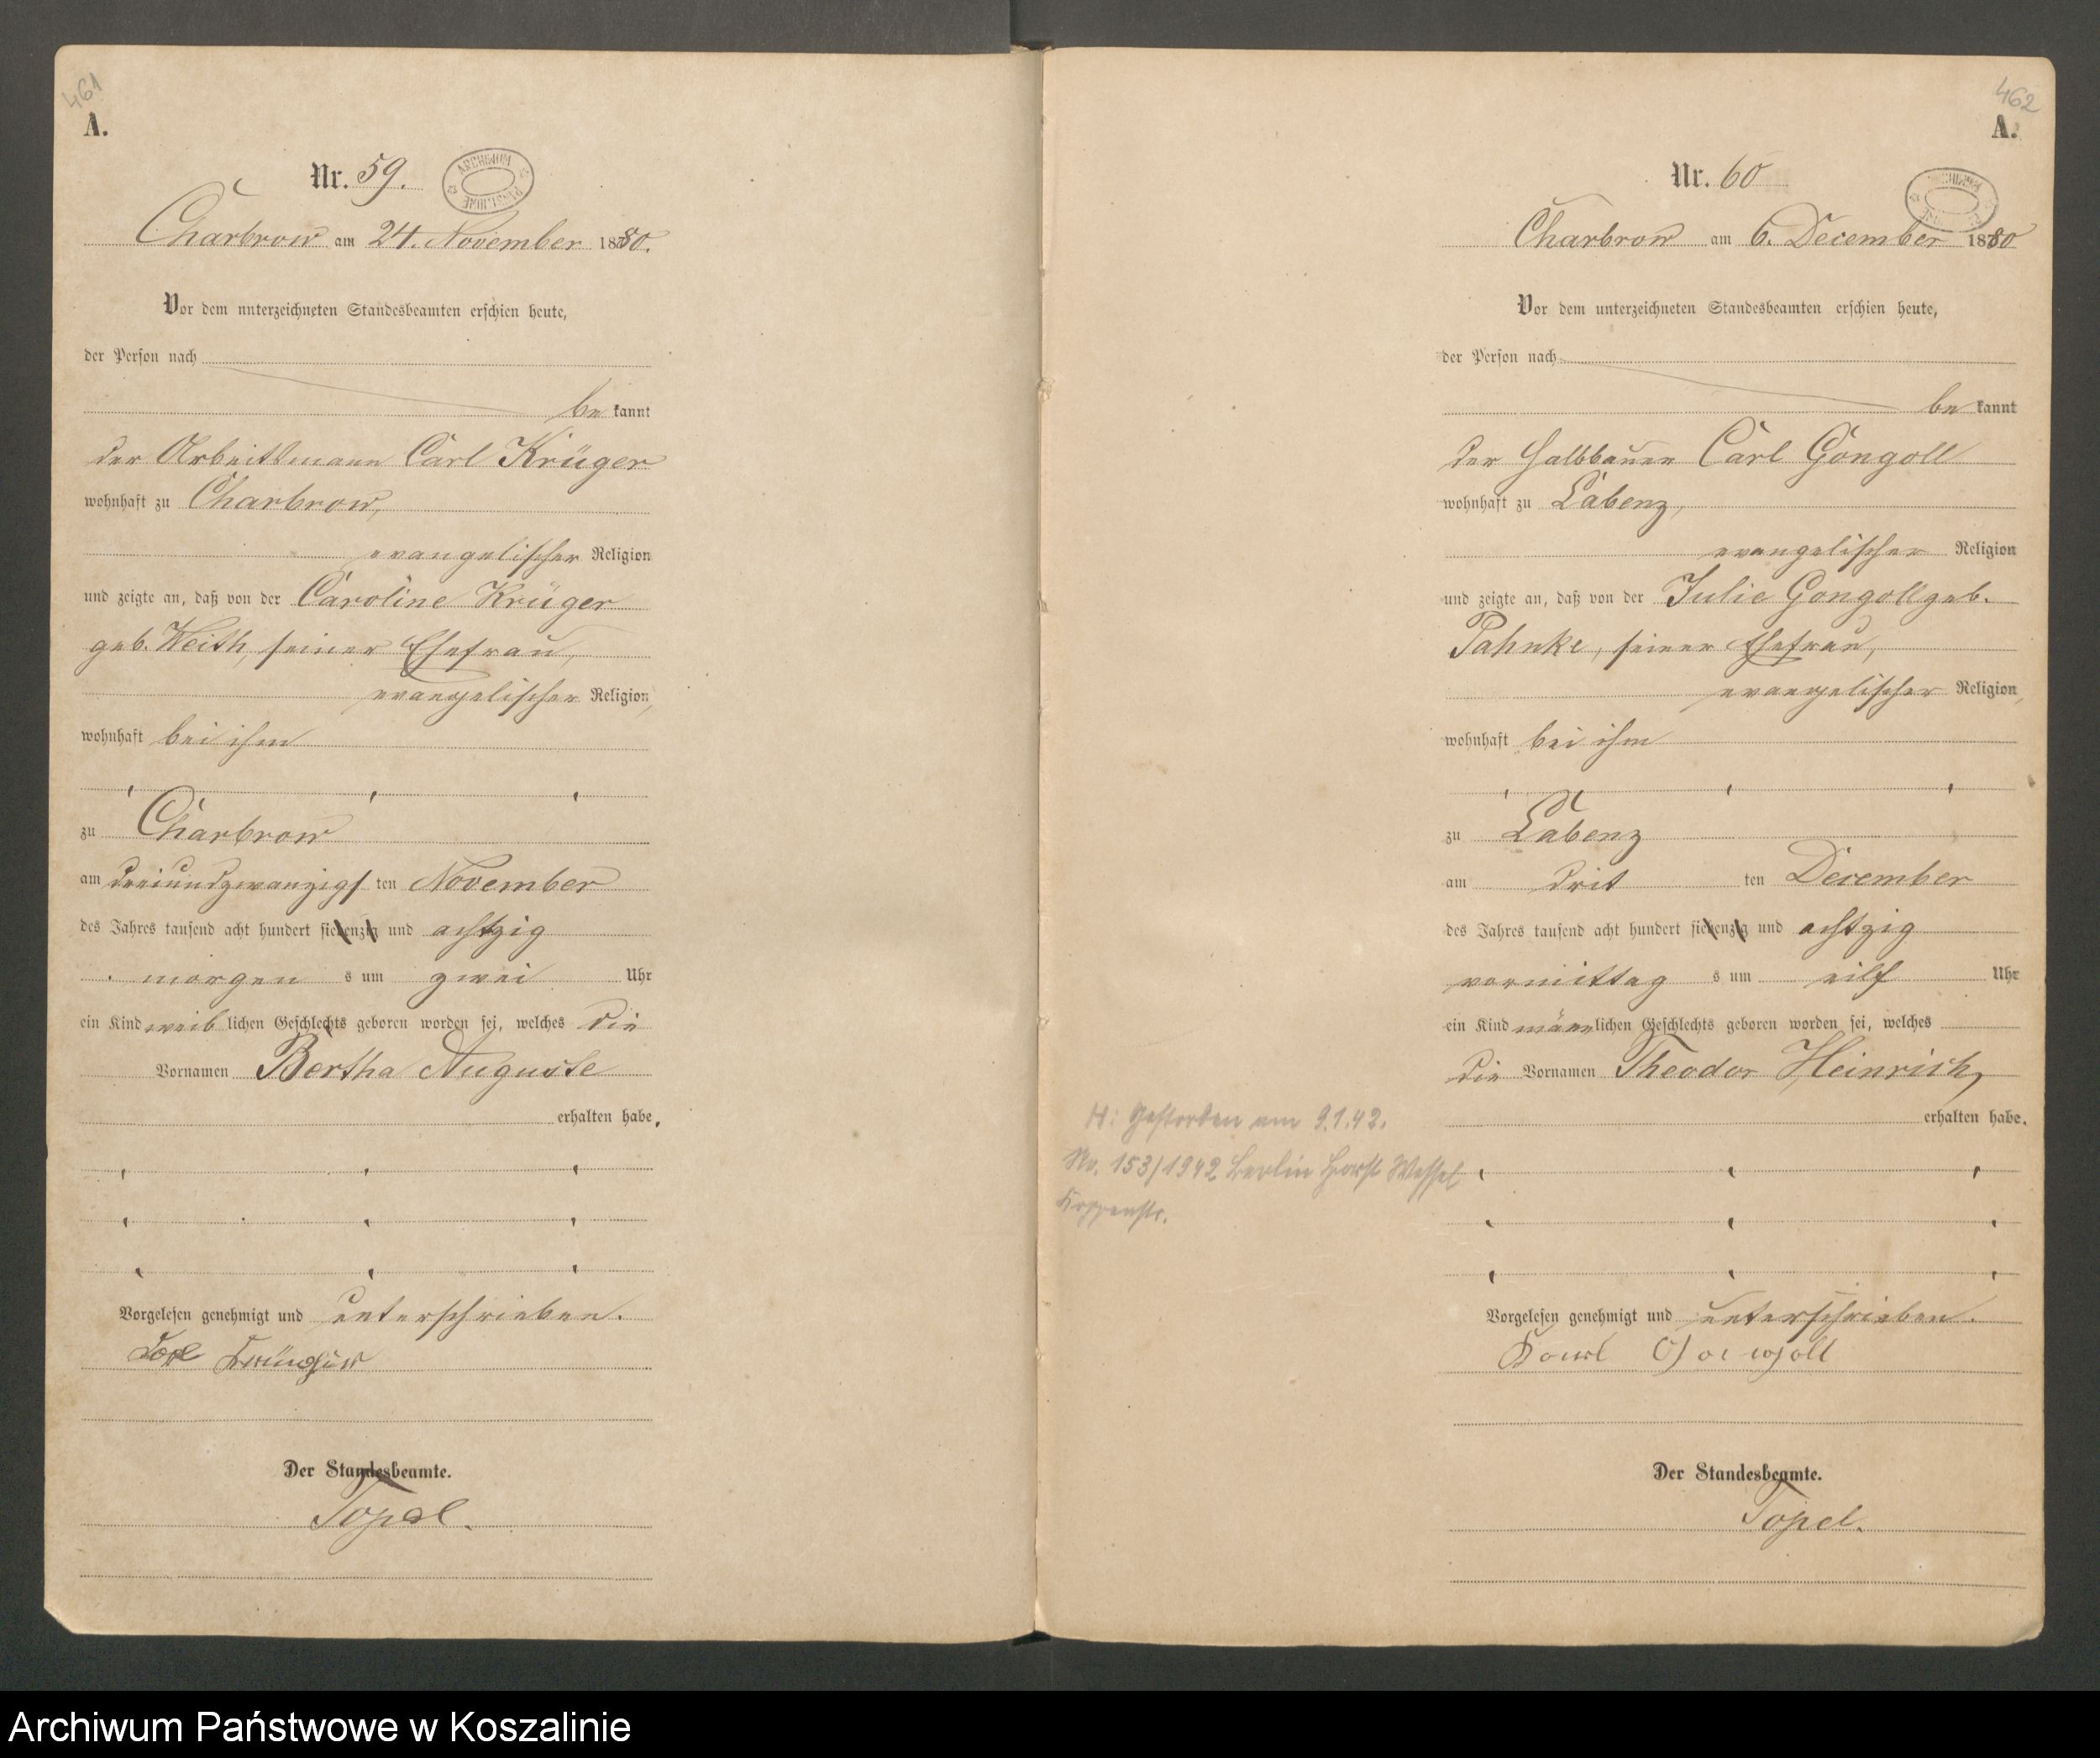 461
A.
Nr. 59.
ARCHIWUM
Charbrow am 24. November 1880.
Vor dem unterzeichneten Standesbeamten erschien heute,
der Person nach
be kannt
der Arbeitsmann Carl Krüger
wohnhaft zu Charbrow,
evangelischer Religion
und zeigte an, daß von der Caroline Krüger
geb. Weith, seiner Ehefrau,
evangelischer Religion,
wohnhaft bei ihm
zu Charbrow
am dreiundzwanzigs ten November
des Jahres tausend acht hundert siebenzig und achtzig
morgen s um zwei Uhr
ein Kind weib lichen Geschlechts geboren worden sei, welches die
Vornamen Bertha Auguste
erhalten habe.
Vorgelesen genehmigt und unterschrieben.
Krüger
Der Standesbeamte.
Topel.
462
A.
Nr. 60
Charbrow am 6. December 1880
Vor dem unterzeichneten Standesbeamten erschien heute,
der Person nach
be kannt
der Halbbauer Carl Gongoll
wohnhaft zu Labenz,
evangelischer Religion
und zeigte an, daß von der Julie Gongoll geb.
Pahnke, seiner Ehefrau,
evangelischer Religion,
wohnhaft bei ihm
zu Labenz
am drit ten December
des Jahres tausend acht hundert siebenzig und achtzig
vormittag s um eilf Uhr
ein Kind männlichen Geschlechts geboren worden sei, welches
die Vornamen Theodor Heinrich,
erhalten habe.
H: Gestorben am 9.1.42.
Nr. 153/1942 Berlin Horst Wessel
Koppenstr.
Vorgelesen genehmigt und unterschrieben.
Karl Gongoll
Der Standesbeamte.
Topel.
Archiwum Państwowe w Koszalinie